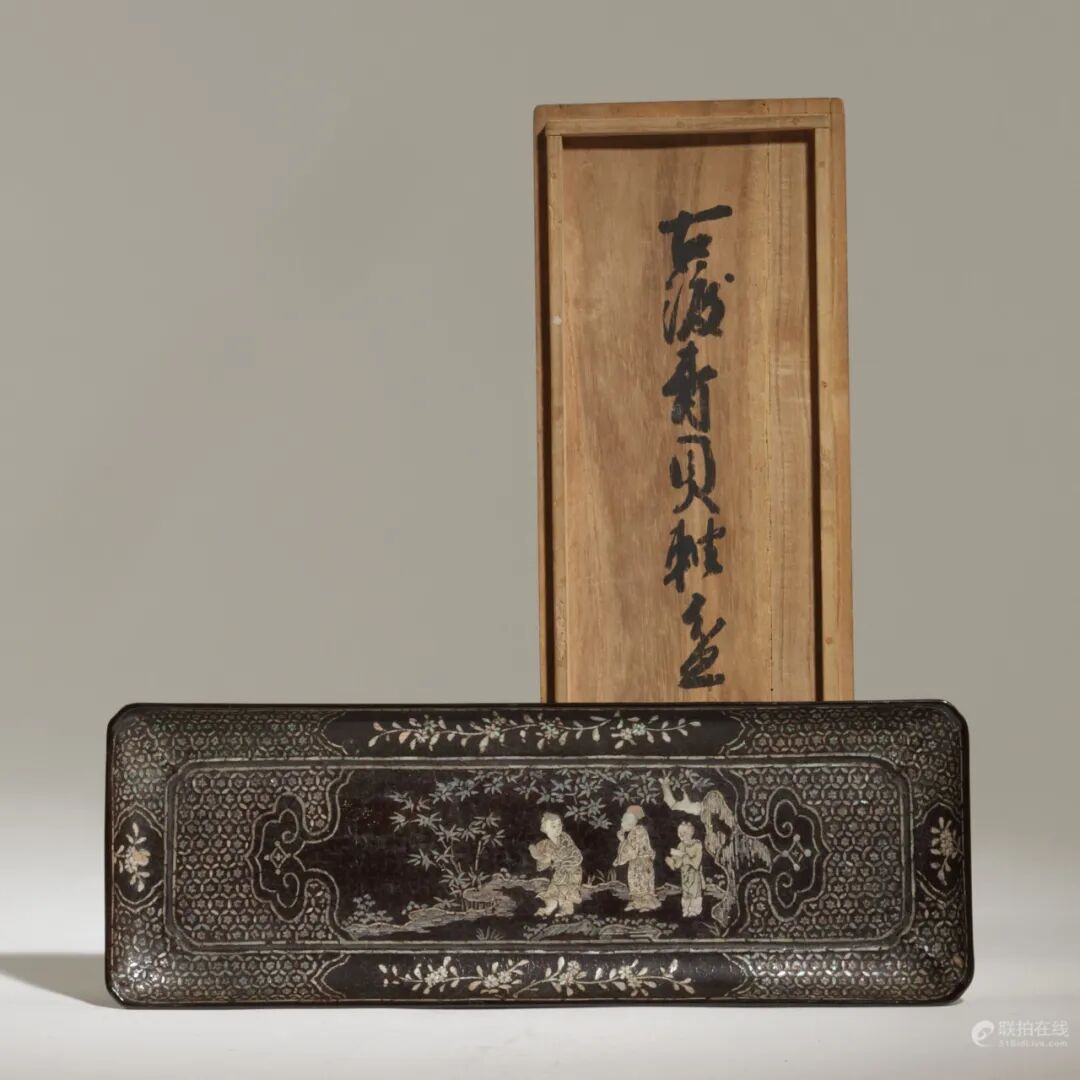 古渡青貝軸盆
联拍在线
51BidLive.com